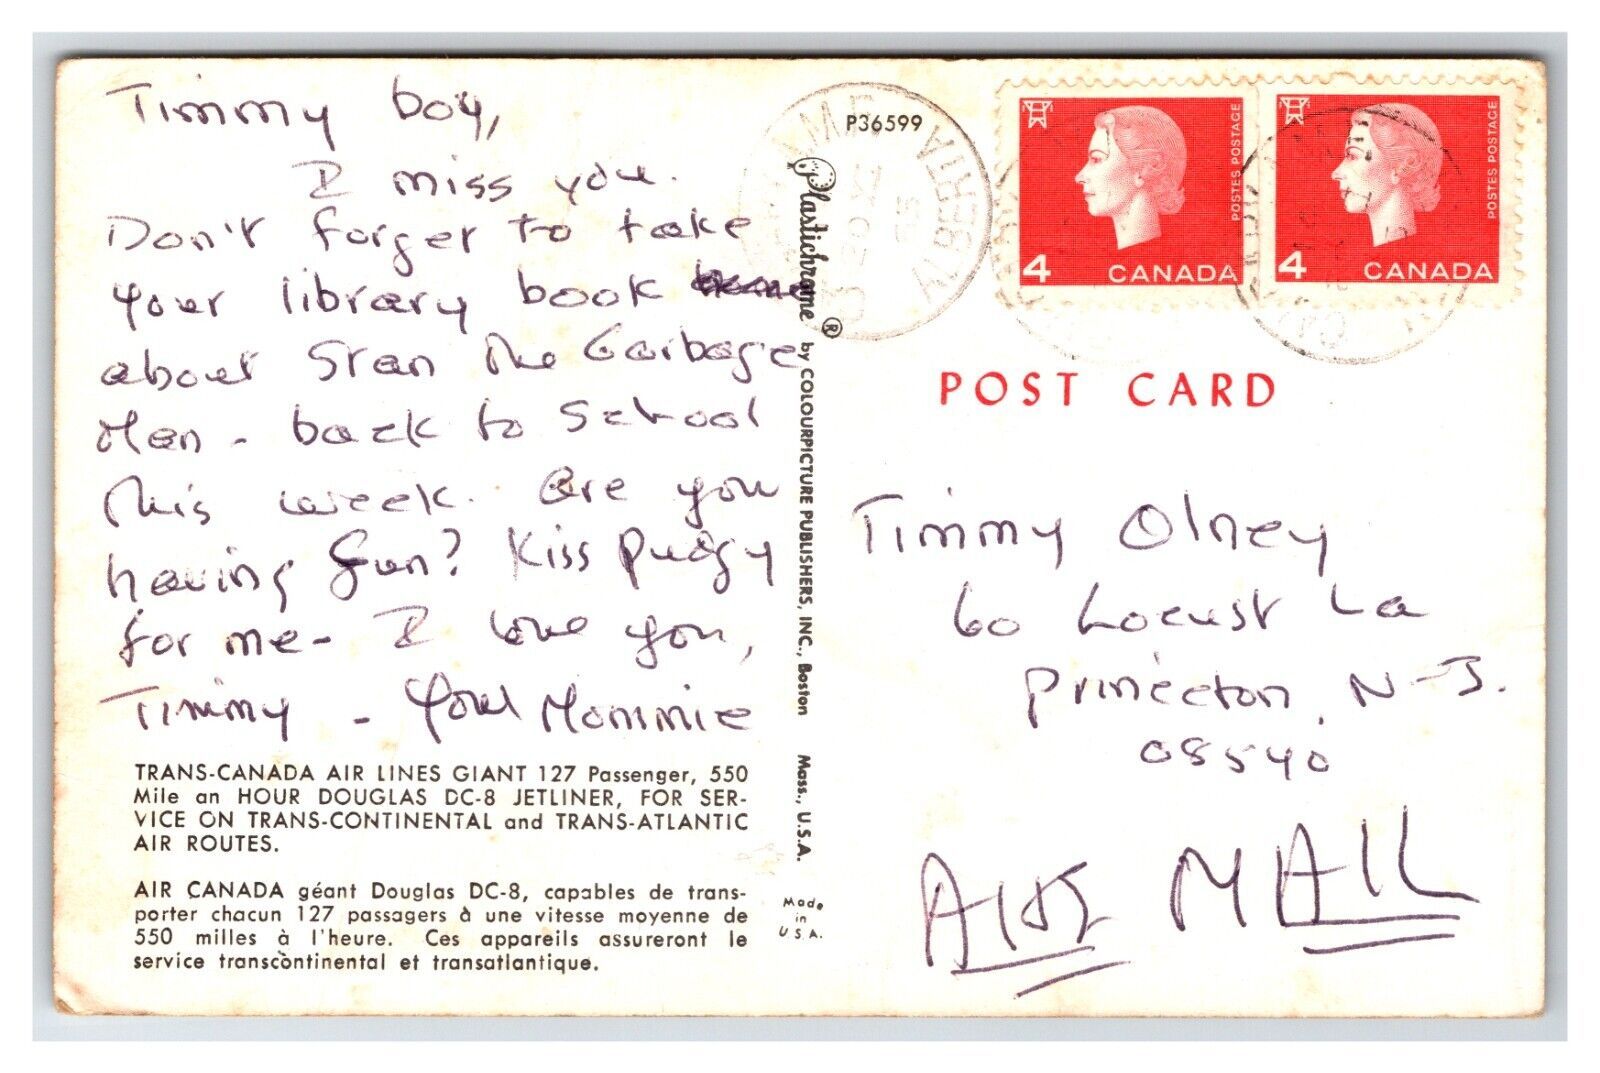 Timmy boy,
I miss you.
Don't forget to take
your library book
about Stan the Garbage
Man - back to School
this week. Are you
having fun? Kiss Pudgy
for me - I love you,
Timmy - Your Mommie
TRANS-CANADA AIR LINES GIANT 127 Passenger, 550
Mile an HOUR DOUGLAS DC-8 JETLINER, FOR SER-
VICE ON TRANS-CONTINENTAL and TRANS-ATLANTIC
AIR ROUTES.
AIR CANADA géant Douglas DC-8, capables de trans-
porter chacun 127 passagers à une vitesse moyenne de
550 milles à l'heure. Ces appareils assureront le
service transcontinental et transatlantique.
P36599
Plastichrome® by COLOURPICTURE PUBLISHERS, INC., Boston Mass., U.S.A.
Made
in
U S A.
ALBERTA
POSTES POSTAGE
4 CANADA
POSTES POSTAGE
4 CANADA
POST CARD
Timmy Olney
60 Locust La
Princeton, N-J.
08540
AIR MAIL